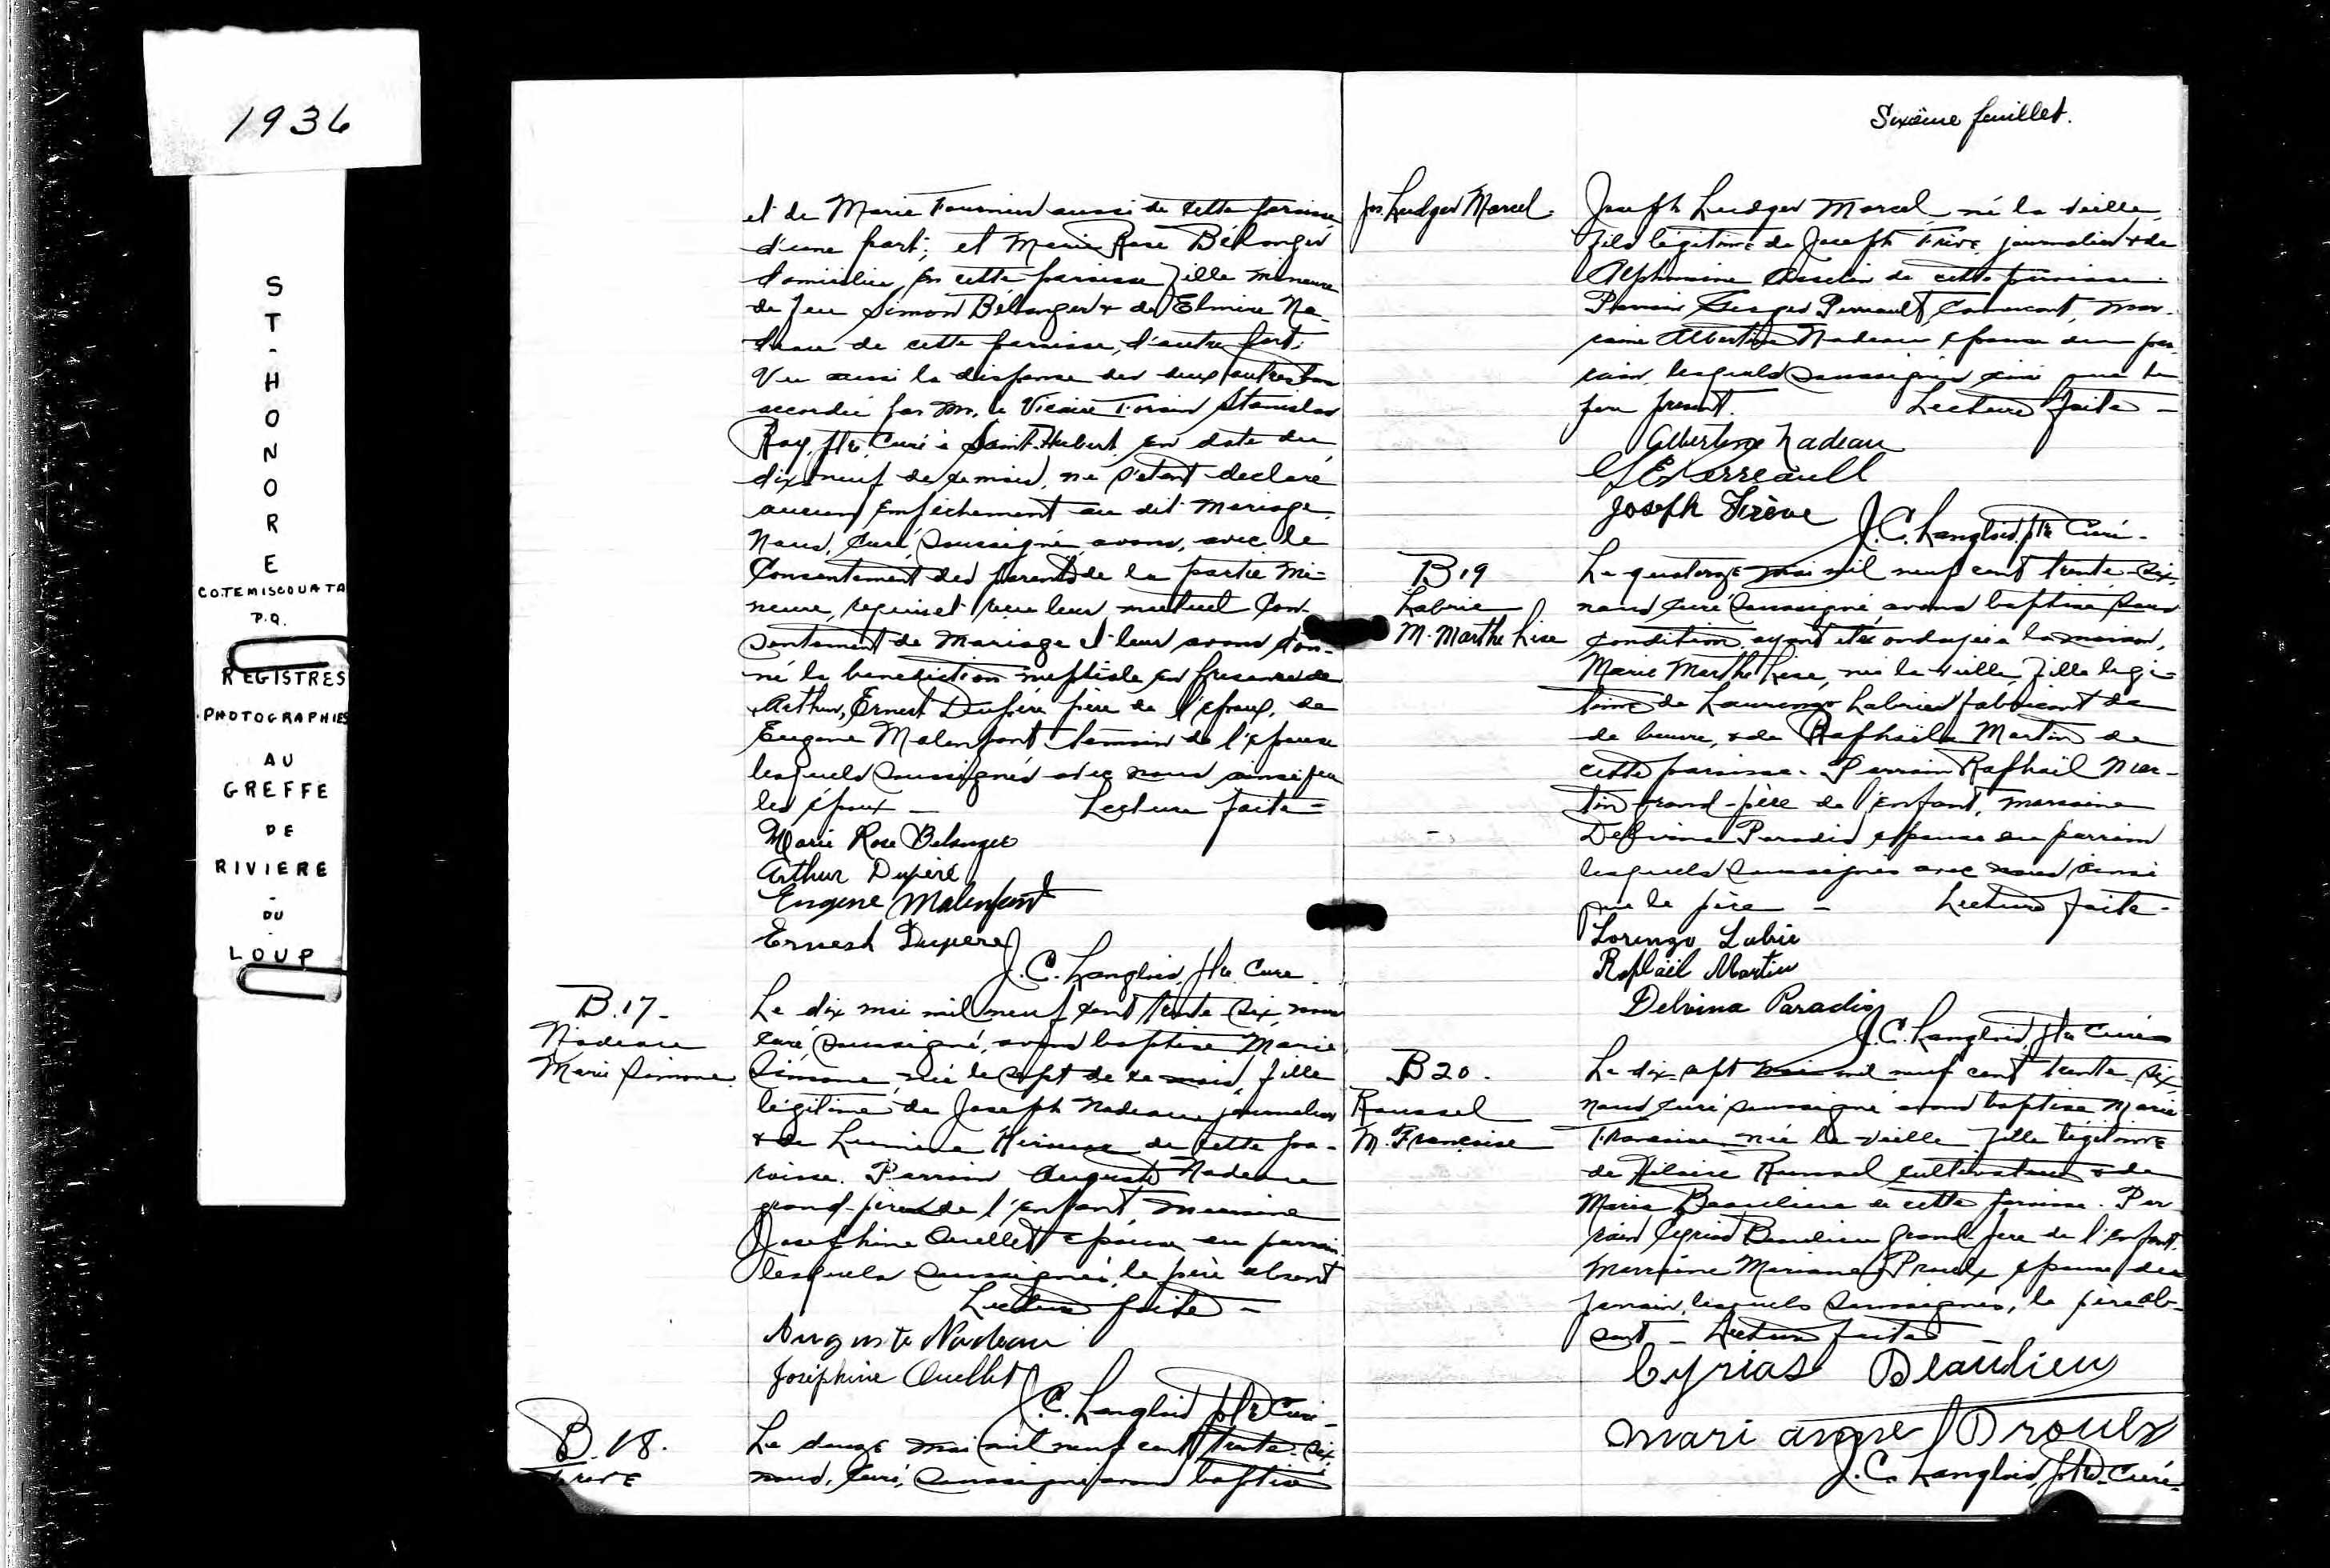 1936
ST-HONORE
CO. TEMISCOUATA
P.Q.
REGISTRES
PHOTOGRAPHIES
AU
GREFFE
DE
RIVIERE
-
DU
-
LOUP
et de Marie Fournier aussi de cette paroisse
d'une part; et Marie Rose Bélanger
domiciliée en cette paroisse fille mineure
de feu Simon Bélanger & de Elmire Na-
deau de cette paroisse, d'autre part;
Vu aussi la dispense des deux autres bans
accordée par M. le Vicaire Forain Stanislas
Roy, ptre Curé à Saint-Hubert en date du
dix neuf de ce mois, ne s'étant déclaré
aucun empêchement au dit mariage,
Nous, Curé, soussigné, avons, avec le
Consentement des parents de la partie mi-
neure, requis et reçu leur mutuel con-
sentement de mariage et leur avons don-
né la bénédiction nuptiale en présence de
Arthur, Ernest Dupéré père de l'époux, de
Eugène Malenfant témoin de l'épouse
lesquels soussignés avec nous ainsi que
les époux — Lecture faite =
Marie Rose Belanger
Arthur Dupéré
Eugene Malenfant
Ernest Dupere
J. C. Langlois, ptre Curé
B.17-
Nadeau
Marie Simone.
Le dix mai mil neuf cent trente six, nous
curé, soussigné, avons baptisé Marie
Simone née le sept de ce mois, fille
légitime de Joseph Nadeau journalier
& de de cette pa-
roisse. Parrain Auguste Nadeau
grand-père de l'enfant, marraine
Josephine Ouellet épouse du parrain
lesquels soussignés, le père absent
Lecture faite —
Auguste Nadeau
Joséphine Ouellet
J. C. Langlois ptre Curé -
B.18.
Le douze mai mil neuf cent trente-six,
nous, Curé, soussigné avons baptisé
Sixième feuillet.
Jos. Ludger Marcel.
Joseph Ludger Marcel né la veille,
fils légitime de Joseph journalier & de
Alphonsine Asselin de cette paroisse.
Parrain Perreault, commerçant, mar-
raine Albertine Nadeau épouse du par-
rain, lesquels soussignés ainsi que le
père présent. Lecture faite —
Albertine Nadeau
Perreault
Joseph
J. C. Langlois, ptre Curé-
B19
Labrie
M. Marthe Lise
Le quatorze mai mil neuf cent trente-six,
nous curé soussigné avons baptisé sous
condition, ayant été ondoyée à la maison,
Marie Marthe Lise, née la veille, fille légi-
time de Laurenzo Labrie fabricant de
de beurre, & de Raphaëla Martin de
cette paroisse. Parrain Raphaël Mar-
tin grand-père de l'enfant, marraine
Delvina Paradis épouse du parrain
lesquels soussignés avec nous ainsi
que le père — Lecture faite-
Lorenzo Labrie
Raphaël Martin
Delvina Paradis
J. C. Langlois, ptre Curé
B20.
Roussel
M. Françoise
Le dix-sept mai mil neuf cent trente-six
nous curé soussigné avons baptisé Marie
Françoise née la veille fille légitime
de Hilaire Roussel cultivateur & de
Maria Beaulieu de cette paroisse. Par-
rain Cyrias Beaulieu grand-père de l'enfant,
marraine Mariane Proulx épouse du
parrain, lesquels soussignés, le père ab-
sent — Lecture faite —
Cyrias Beaulieu
Mari anne Proulx
J. C. Langlois, ptre. Curé-